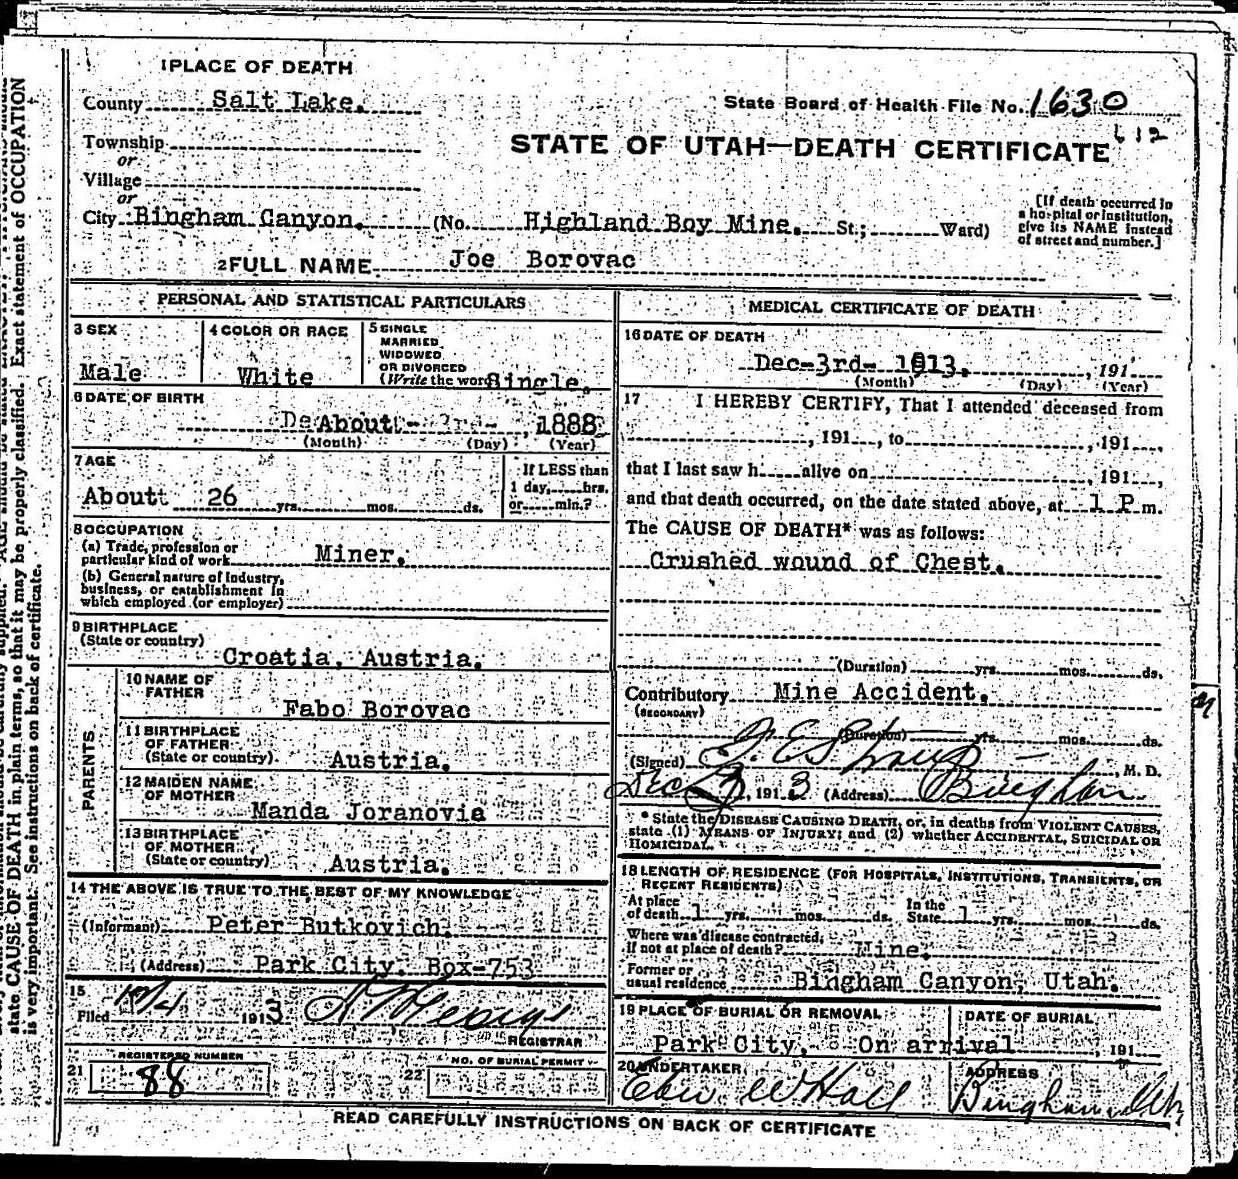 1 PLACE OF DEATH
County Salt Lake.
State Board of Health File No. 1630
612
Township
or
Village
or
STATE OF UTAH—DEATH CERTIFICATE
City Bingham Canyon. (No. Highland Boy Mine. St.; Ward)
[If death occurred in
a hospital or institution,
give its NAME instead
of street and number.]
2 FULL NAME Joe Borovac
PERSONAL AND STATISTICAL PARTICULARS
3 SEX
Male
4 COLOR OR RACE
White
5 SINGLE
MARRIED
WIDOWED
OR DIVORCED
(Write the word Single.
6 DATE OF BIRTH
About 3rd- , 1888
(Month) (Day) (Year)
7 AGE
Aboutt 26 yrs. mos. ds.
If LESS than
1 day, hrs.
or min.?
8 OCCUPATION
(a) Trade, profession or
particular kind of work Miner.
(b) General nature of industry,
business, or establishment in
which employed (or employer)
9 BIRTHPLACE
(State or country)
Croatia, Austria.
PARENTS
10 NAME OF
FATHER
Fabo Borovac
11 BIRTHPLACE
OF FATHER
(State or country) Austria.
12 MAIDEN NAME
OF MOTHER
Manda Joranovia
13 BIRTHPLACE
OF MOTHER
(State or country) Austria.
14 THE ABOVE IS TRUE TO THE BEST OF MY KNOWLEDGE
(Informant) Peter Butkovich.
(Address) Park City. Box-753
15
Filed 1913
REGISTRAR
REGISTERED NUMBER
21 88
NO. OF BURIAL PERMIT
22
MEDICAL CERTIFICATE OF DEATH
16 DATE OF DEATH
Dec-3rd- 1913. , 191
(Month) (Day) (Year)
17 I HEREBY CERTIFY, That I attended deceased from
, 191 , to , 191 ,
that I last saw h alive on , 191 ,
and that death occurred, on the date stated above, at 1 P m.
The CAUSE OF DEATH* was as follows:
Crushed wound of Chest.
(Duration) yrs. mos. ds.
Contributory Mine Accident.
(SECONDARY)
(Duration) yrs. mos. ds.
(Signed) , M. D.
Dec , 1913 (Address) Bingham
* State the DISEASE CAUSING DEATH, or, in deaths from VIOLENT CAUSES,
state (1) MEANS OF INJURY; and (2) whether ACCIDENTAL, SUICIDAL OR
HOMICIDAL.
18 LENGTH OF RESIDENCE (FOR HOSPITALS, INSTITUTIONS, TRANSIENTS, OR
RECENT RESIDENTS)
At place
of death 1 yrs. mos. ds.
In the
State 1 yrs. mos. ds.
Where was disease contracted,
if not at place of death? Mine.
Former or
usual residence Bingham Canyon, Utah.
19 PLACE OF BURIAL OR REMOVAL
Park City,
DATE OF BURIAL
On arrival , 191
20 UNDERTAKER
W Hall
ADDRESS
Bingham Utah
READ CAREFULLY INSTRUCTIONS ON BACK OF CERTIFICATE
state CAUSE OF DEATH in plain terms, so that it may be properly classified. Exact statement of OCCUPATION
is very important. See instructions on back of certificate.